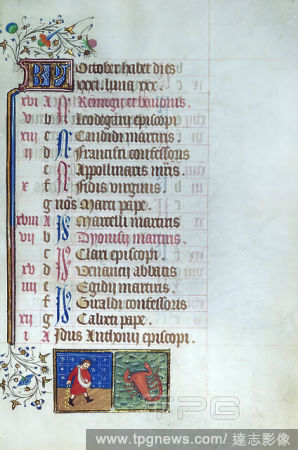 KL October habet dies
xxxi. luna xxx.
xvi A N Remigii et bavonis
v b N Leodegarii episcopi
xiii c N Candidi martiris
ii d N Francisci confessoris
e N Appollinaris mris.
x f N Fidis virginis
g nos Marci pape.
xviii A Is Marcelli martiris
vii b Is Dyonisii martiris.
c Is Clari episcopi.
xv d Is Venancii abbatis
e Is Egidii martiris
f Is Giraldi confessoris
xii g Is Calixti pape.
i A Idus Anthonii episcopi.
TPG
www.tpgnews.com/ 達志影像